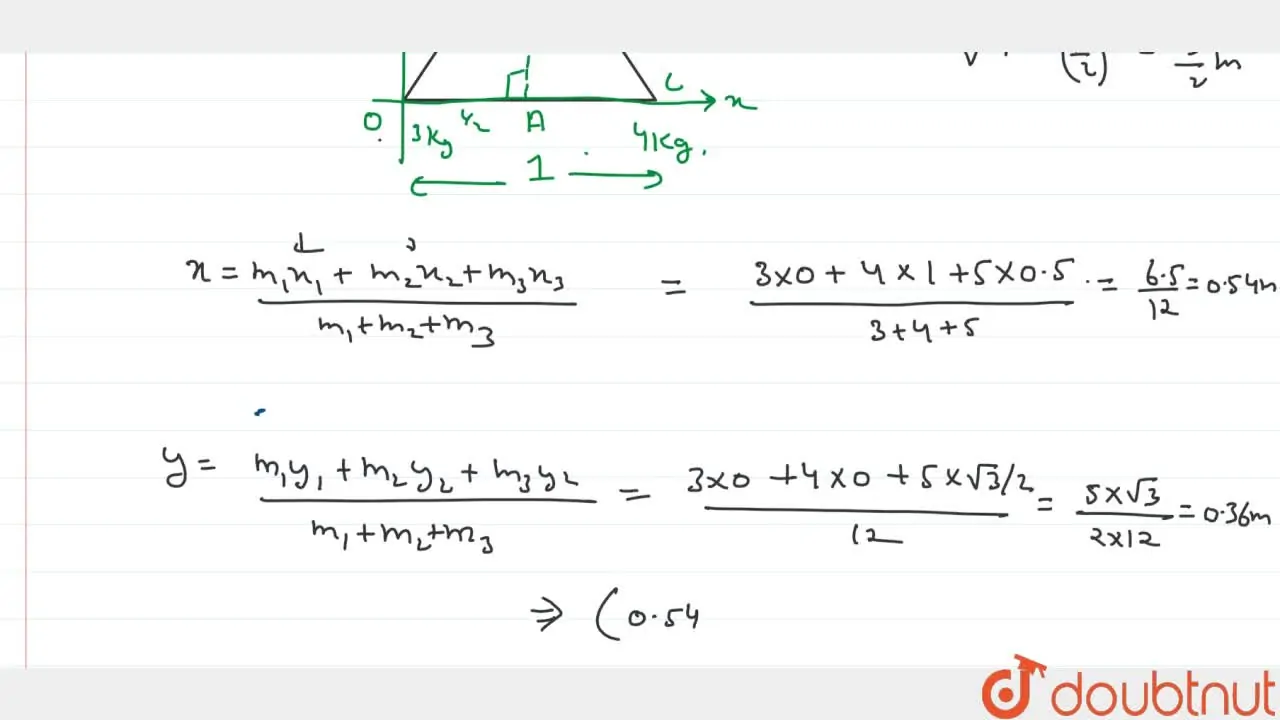 (1/2) = √3/2 m
L
x
O 3Kg 1/2 A 4Kg.
1
x = m₁x₁ + m₂x₂ + m₃x₃ / m₁+m₂+m₃ = 3×0 + 4×1 + 5×0.5 / 3+4+5 = 6.5/12 = 0.54m
y = m₁y₁ + m₂y₂ + m₃y₂ / m₁+m₂+m₃ = 3×0 + 4×0 + 5×√3/2 / 12 = 5×√3 / 2×12 = 0.36m
⇒ (0.54
doubtnut